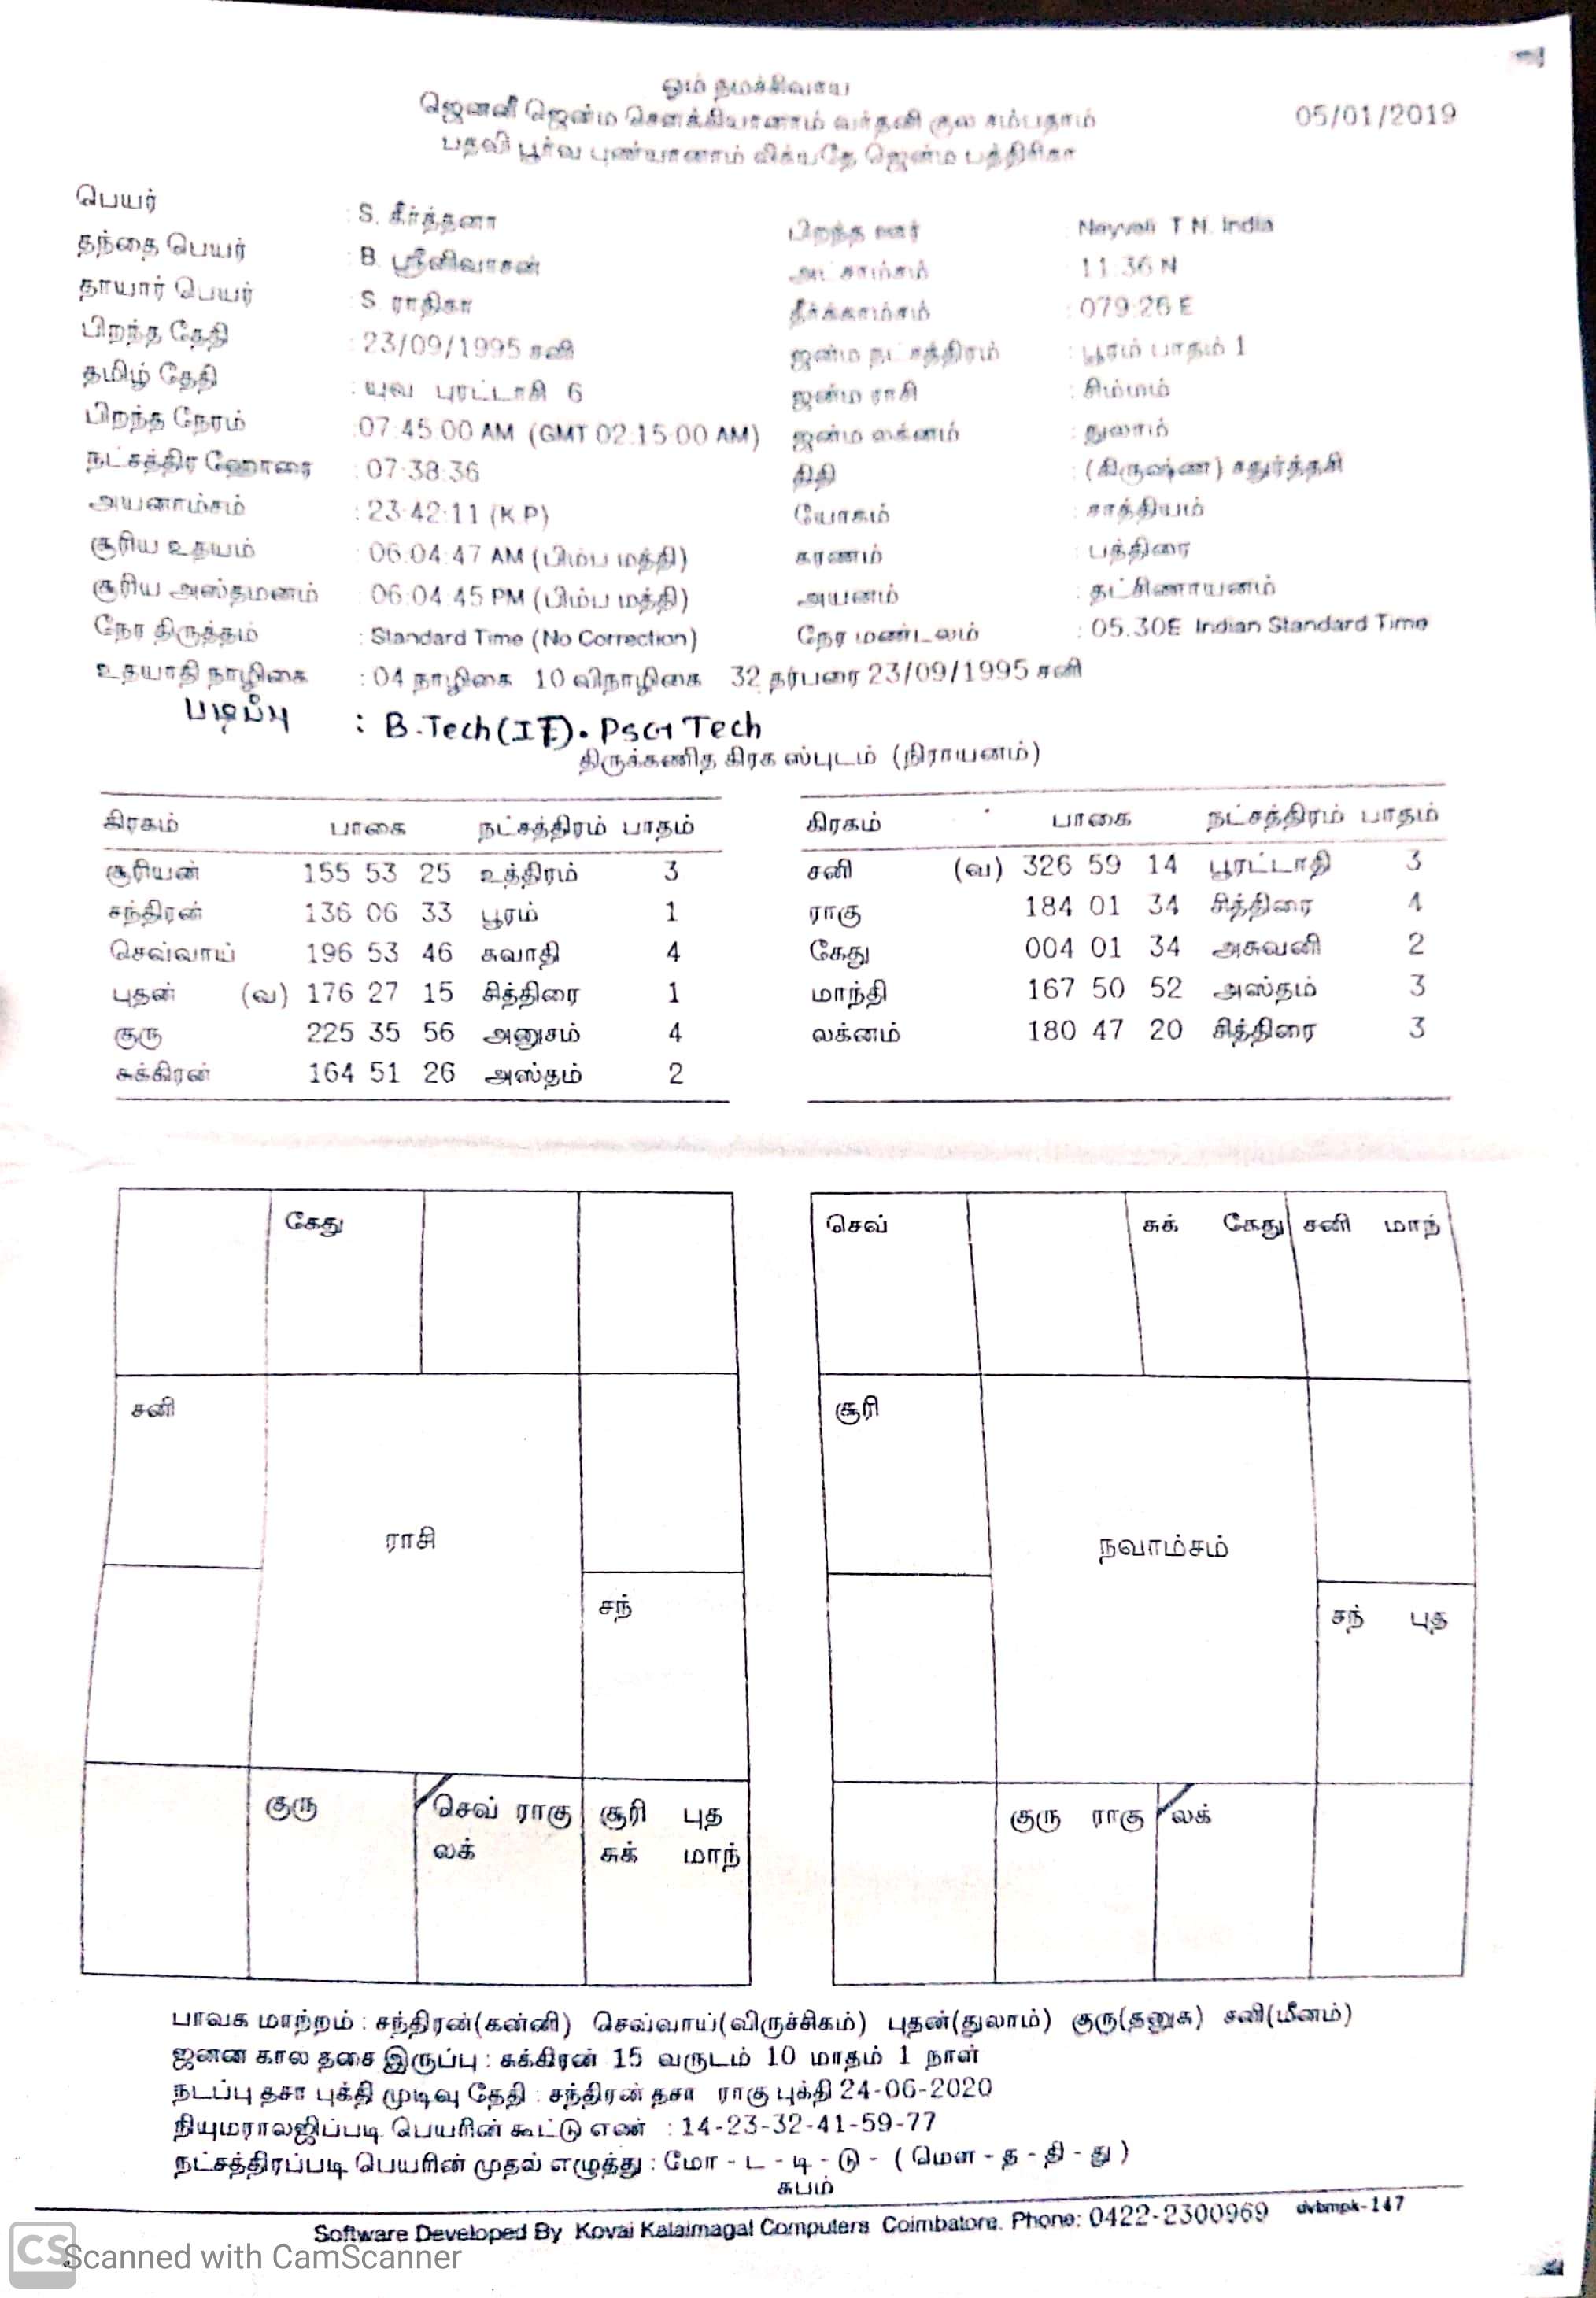 ஓம் நமச்சிவாய
05/01/2019
ஜெனனீ ஜென்ம சௌக்கியானாம் வர்தனி குல சம்பதாம்
பதவி பூர்வ புண்யானாம் லிக்யதே ஜென்ம பத்திரிகா
பெயர் : S. கீர்த்தனா
தந்தை பெயர் : B. ஸ்ரீனிவாசன்
தாயார் பெயர் : S. ராதிகா
பிறந்த தேதி : 23/09/1995 சனி
தமிழ் தேதி : யுவ புரட்டாசி 6
பிறந்த நேரம் :07:45:00 AM (GMT 02:15:00 AM)
நட்சத்திர ஹோரை : 07:38:36
அயனாம்சம் : 23:42:11 (K.P)
சூரிய உதயம் : 06:04:47 AM (பிம்ப மத்தி)
சூரிய அஸ்தமனம் : 06:04:45 PM (பிம்ப மத்தி)
நேர திருத்தம் : Standard Time (No Correction)
உதயாதி நாழிகை : 04 நாழிகை 10 விநாழிகை 32 தர்பரை 23/09/1995 சனி
பிறந்த ஊர் : Neyveli T N. India
அட்சாம்சம் : 11:36 N
தீர்க்காம்சம் : 079:26 E
ஜன்ம நட்சத்திரம் : பூரம் பாதம் 1
ஜன்ம ராசி : சிம்மம்
ஜன்ம லக்னம் : துலாம்
திதி : (கிருஷ்ண) சதுர்த்தசி
யோகம் : சாத்தியம்
கரணம் : பத்திரை
அயனம் : தட்சிணாயனம்
நேர மண்டலம் : 05.30E Indian Standard Time
படிப்பு : B.Tech(IT). PSG Tech
திருக்கணித கிரக ஸ்புடம் (நிராயனம்)
கிரகம் பாகை நட்சத்திரம் பாதம்
சூரியன் 155 53 25 உத்திரம் 3
சந்திரன் 136 06 33 பூரம் 1
செவ்வாய் 196 53 46 சுவாதி 4
புதன் (வ) 176 27 15 சித்திரை 1
குரு 225 35 56 அனுசம் 4
சுக்கிரன் 164 51 26 அஸ்தம் 2
கிரகம் பாகை நட்சத்திரம் பாதம்
சனி (வ) 326 59 14 பூரட்டாதி 3
ராகு 184 01 34 சித்திரை 4
கேது 004 01 34 அசுவனி 2
மாந்தி 167 50 52 அஸ்தம் 3
லக்னம் 180 47 20 சித்திரை 3
கேது
சனி
ராசி
சந்
குரு
செவ் ராகு
லக்
சூரி புத
சுக் மாந்
செவ்
சுக் கேது
சனி மாந்
சூரி
நவாம்சம்
சந் புத
குரு ராகு
லக்
பாவக மாற்றம் : சந்திரன்(கன்னி) செவ்வாய்(விருச்சிகம்) புதன்(துலாம்) குரு(தனுசு) சனி(மீனம்)
ஜனன கால தசை இருப்பு : சுக்கிரன் 15 வருடம் 10 மாதம் 1 நாள்
நடப்பு தசா புக்தி முடிவு தேதி : சந்திரன் தசா ராகு புக்தி 24-06-2020
நியுமராலஜிப்படி பெயரின் கூட்டு எண் : 14-23-32-41-59-77
நட்சத்திரப்படி பெயரின் முதல் எழுத்து : மோ - ட - டி - டு - ( மௌ - த - தி - து )
சுபம்
Software Developed By Kovai Kalaimagal Computers Coimbatore. Phone: 0422-2300969 dvbmpk-147
CS Scanned with CamScanner